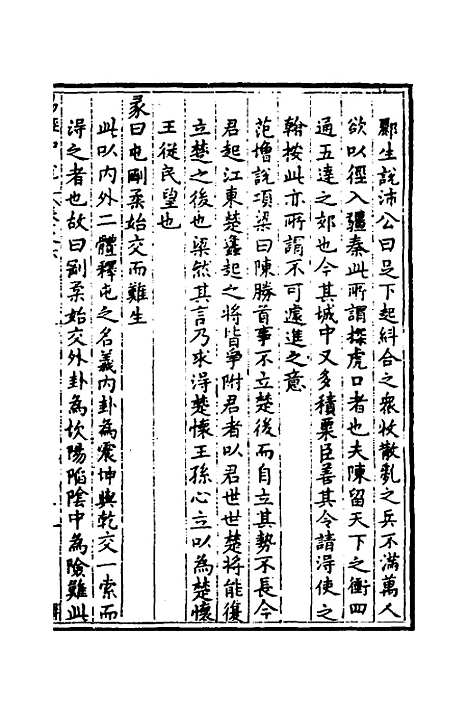 酈生說沛公曰足下起糾合之衆收散亂之兵不滿萬人
欲以徑入彊秦此所謂探虎口者也夫陳留天下之衝四
通五達之郊也今其城中又多積粟臣善其令請淂使之
翰按此亦所謂不可遽進之意
范增說項梁曰陳勝首事不立楚後而自立其勢不長今
君起江東楚蠭起之將皆爭附君者以君世世楚將能復
立楚之後也梁然其言乃求淂楚懷王孫心立以為楚懷
王從民望也
彖曰屯剛柔始交而難生
此以内外二體釋屯之名義内卦為震坤與乾交一索而
淂之者也故曰剛柔始交外卦為坎陽陷陰中為險難此